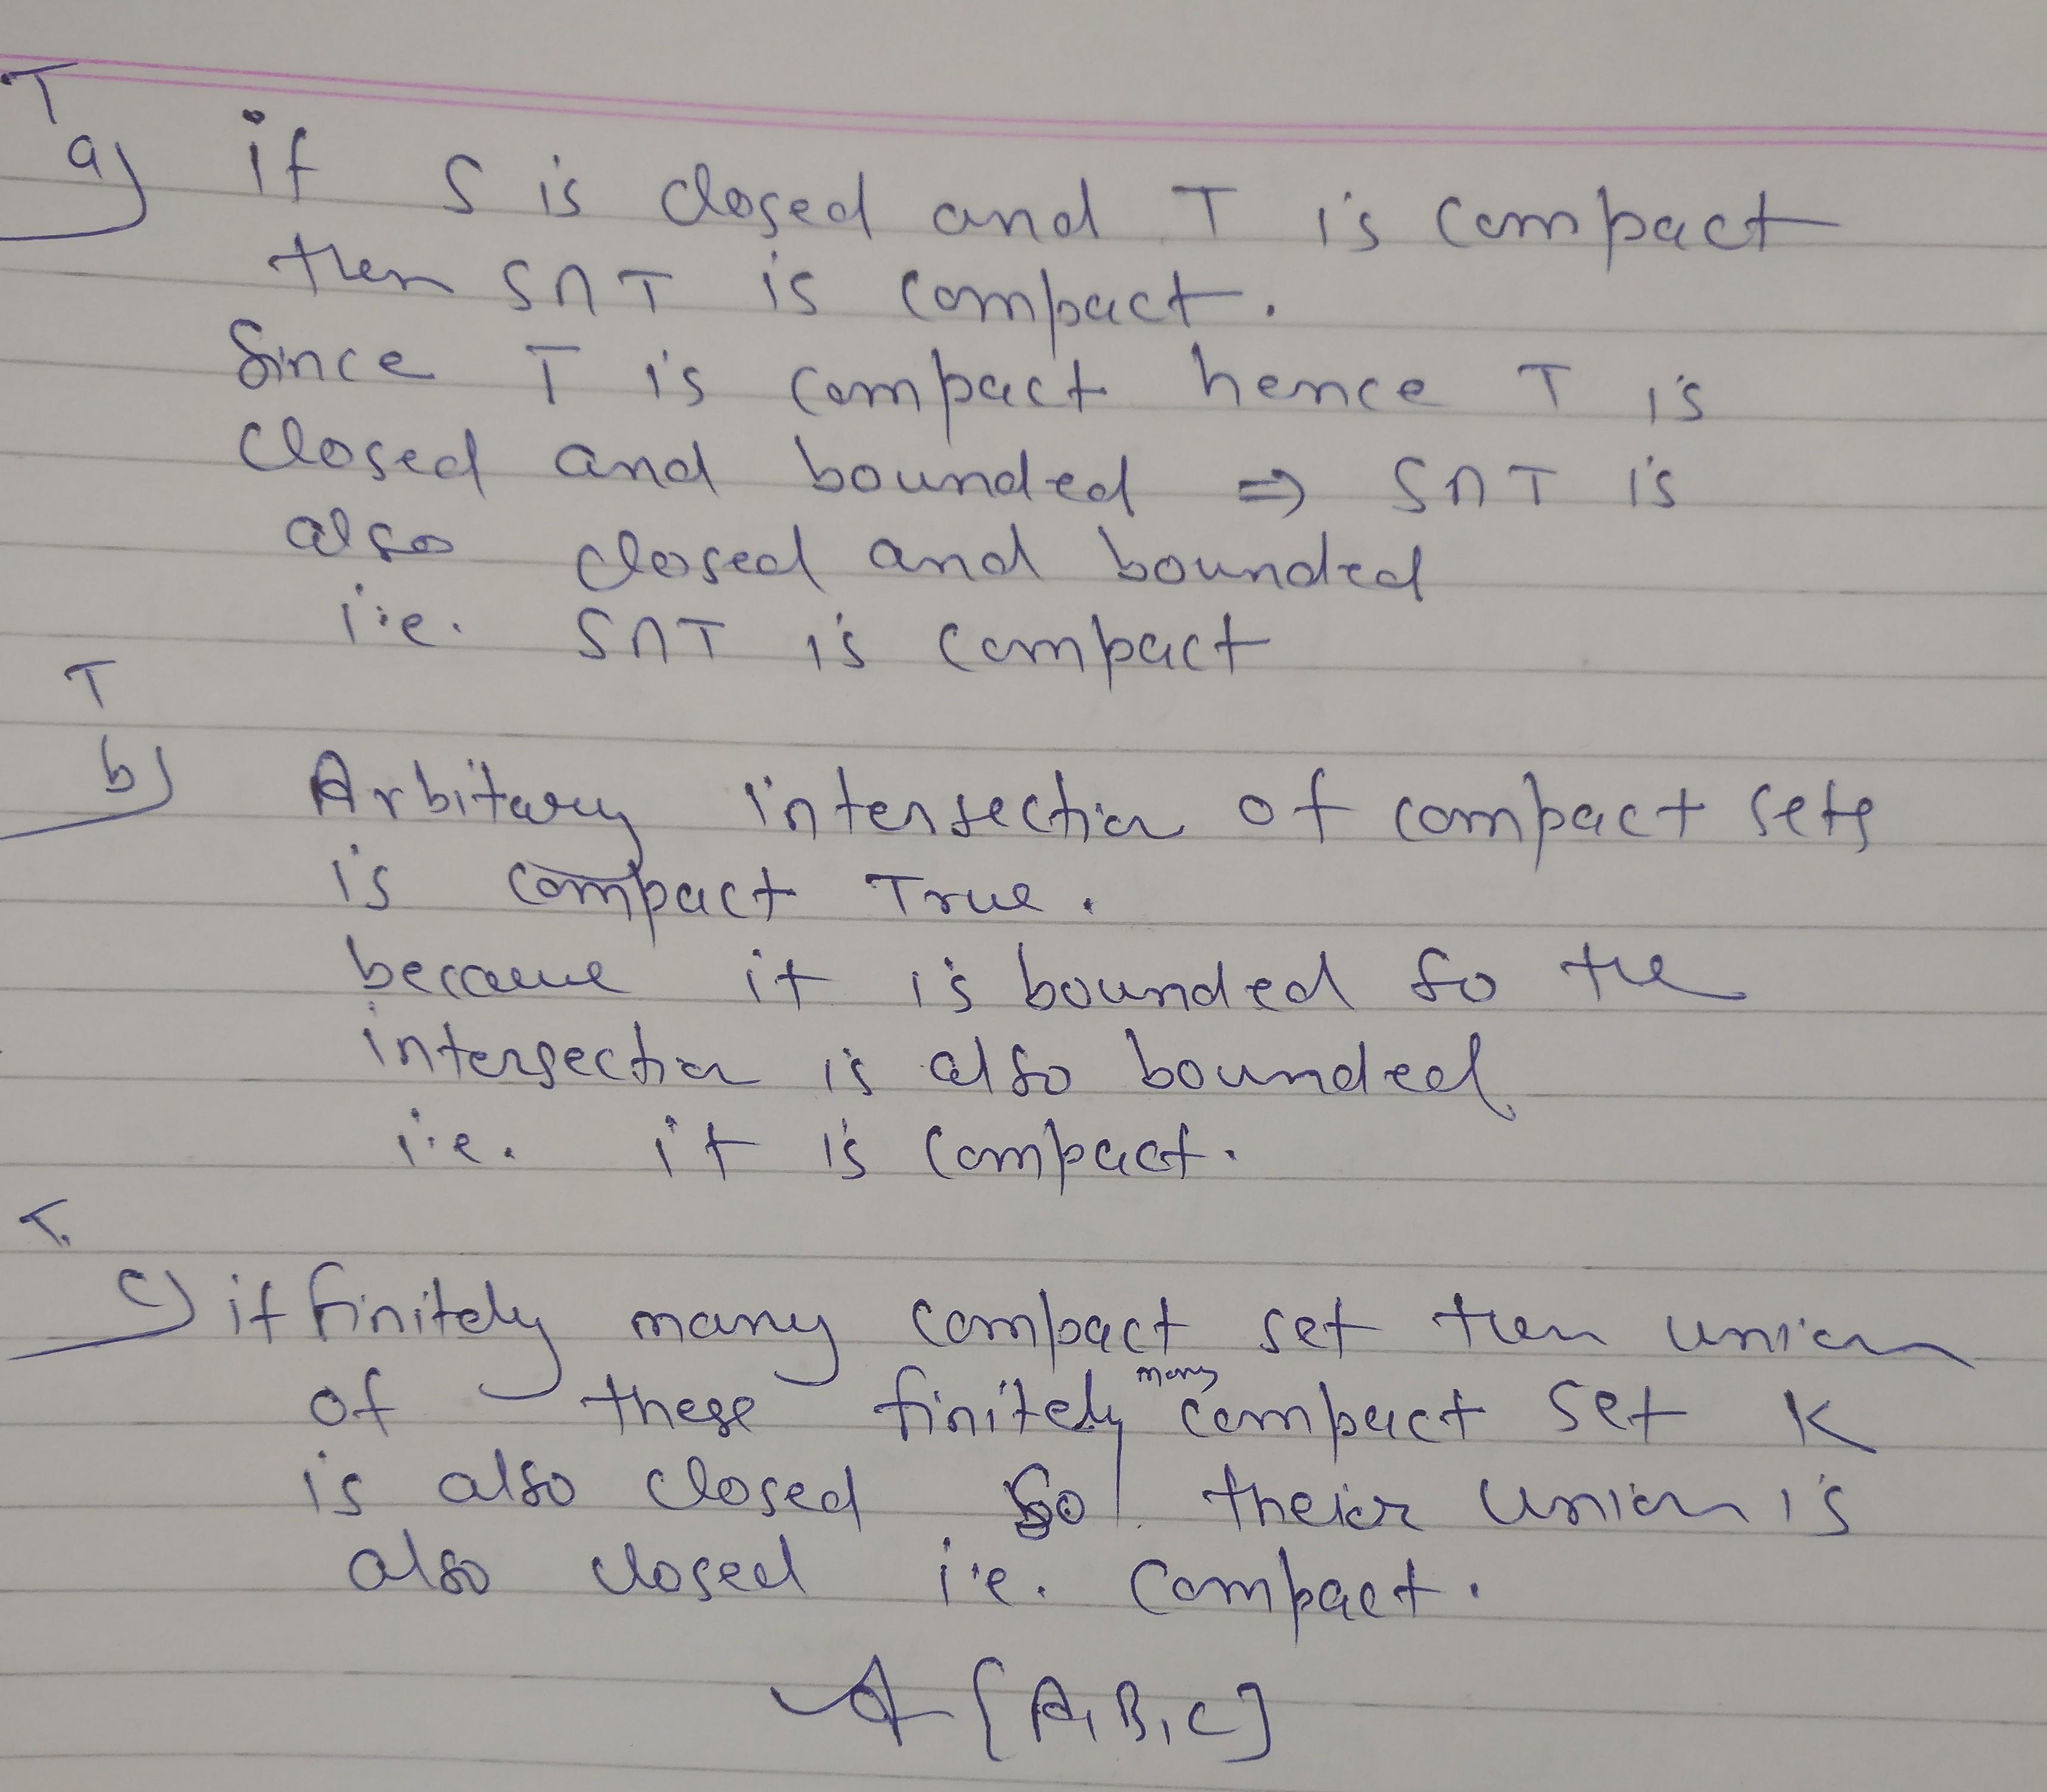 T
a) if S is closed and T is compact
then S∩T is compact.
Since T is compact hence T is
closed and bounded ⇒ S∩T is
also closed and bounded
i.e. S∩T is compact
T
b) Arbitary intersection of compact sets
is compact True.
because it is bounded so the
intersection is also bounded
i.e. it is compact.
T.
c) if finitely many compact set then union
of these finitely many compact set K
is also closed so their union is
also closed i.e. compact.
{A, B, C}